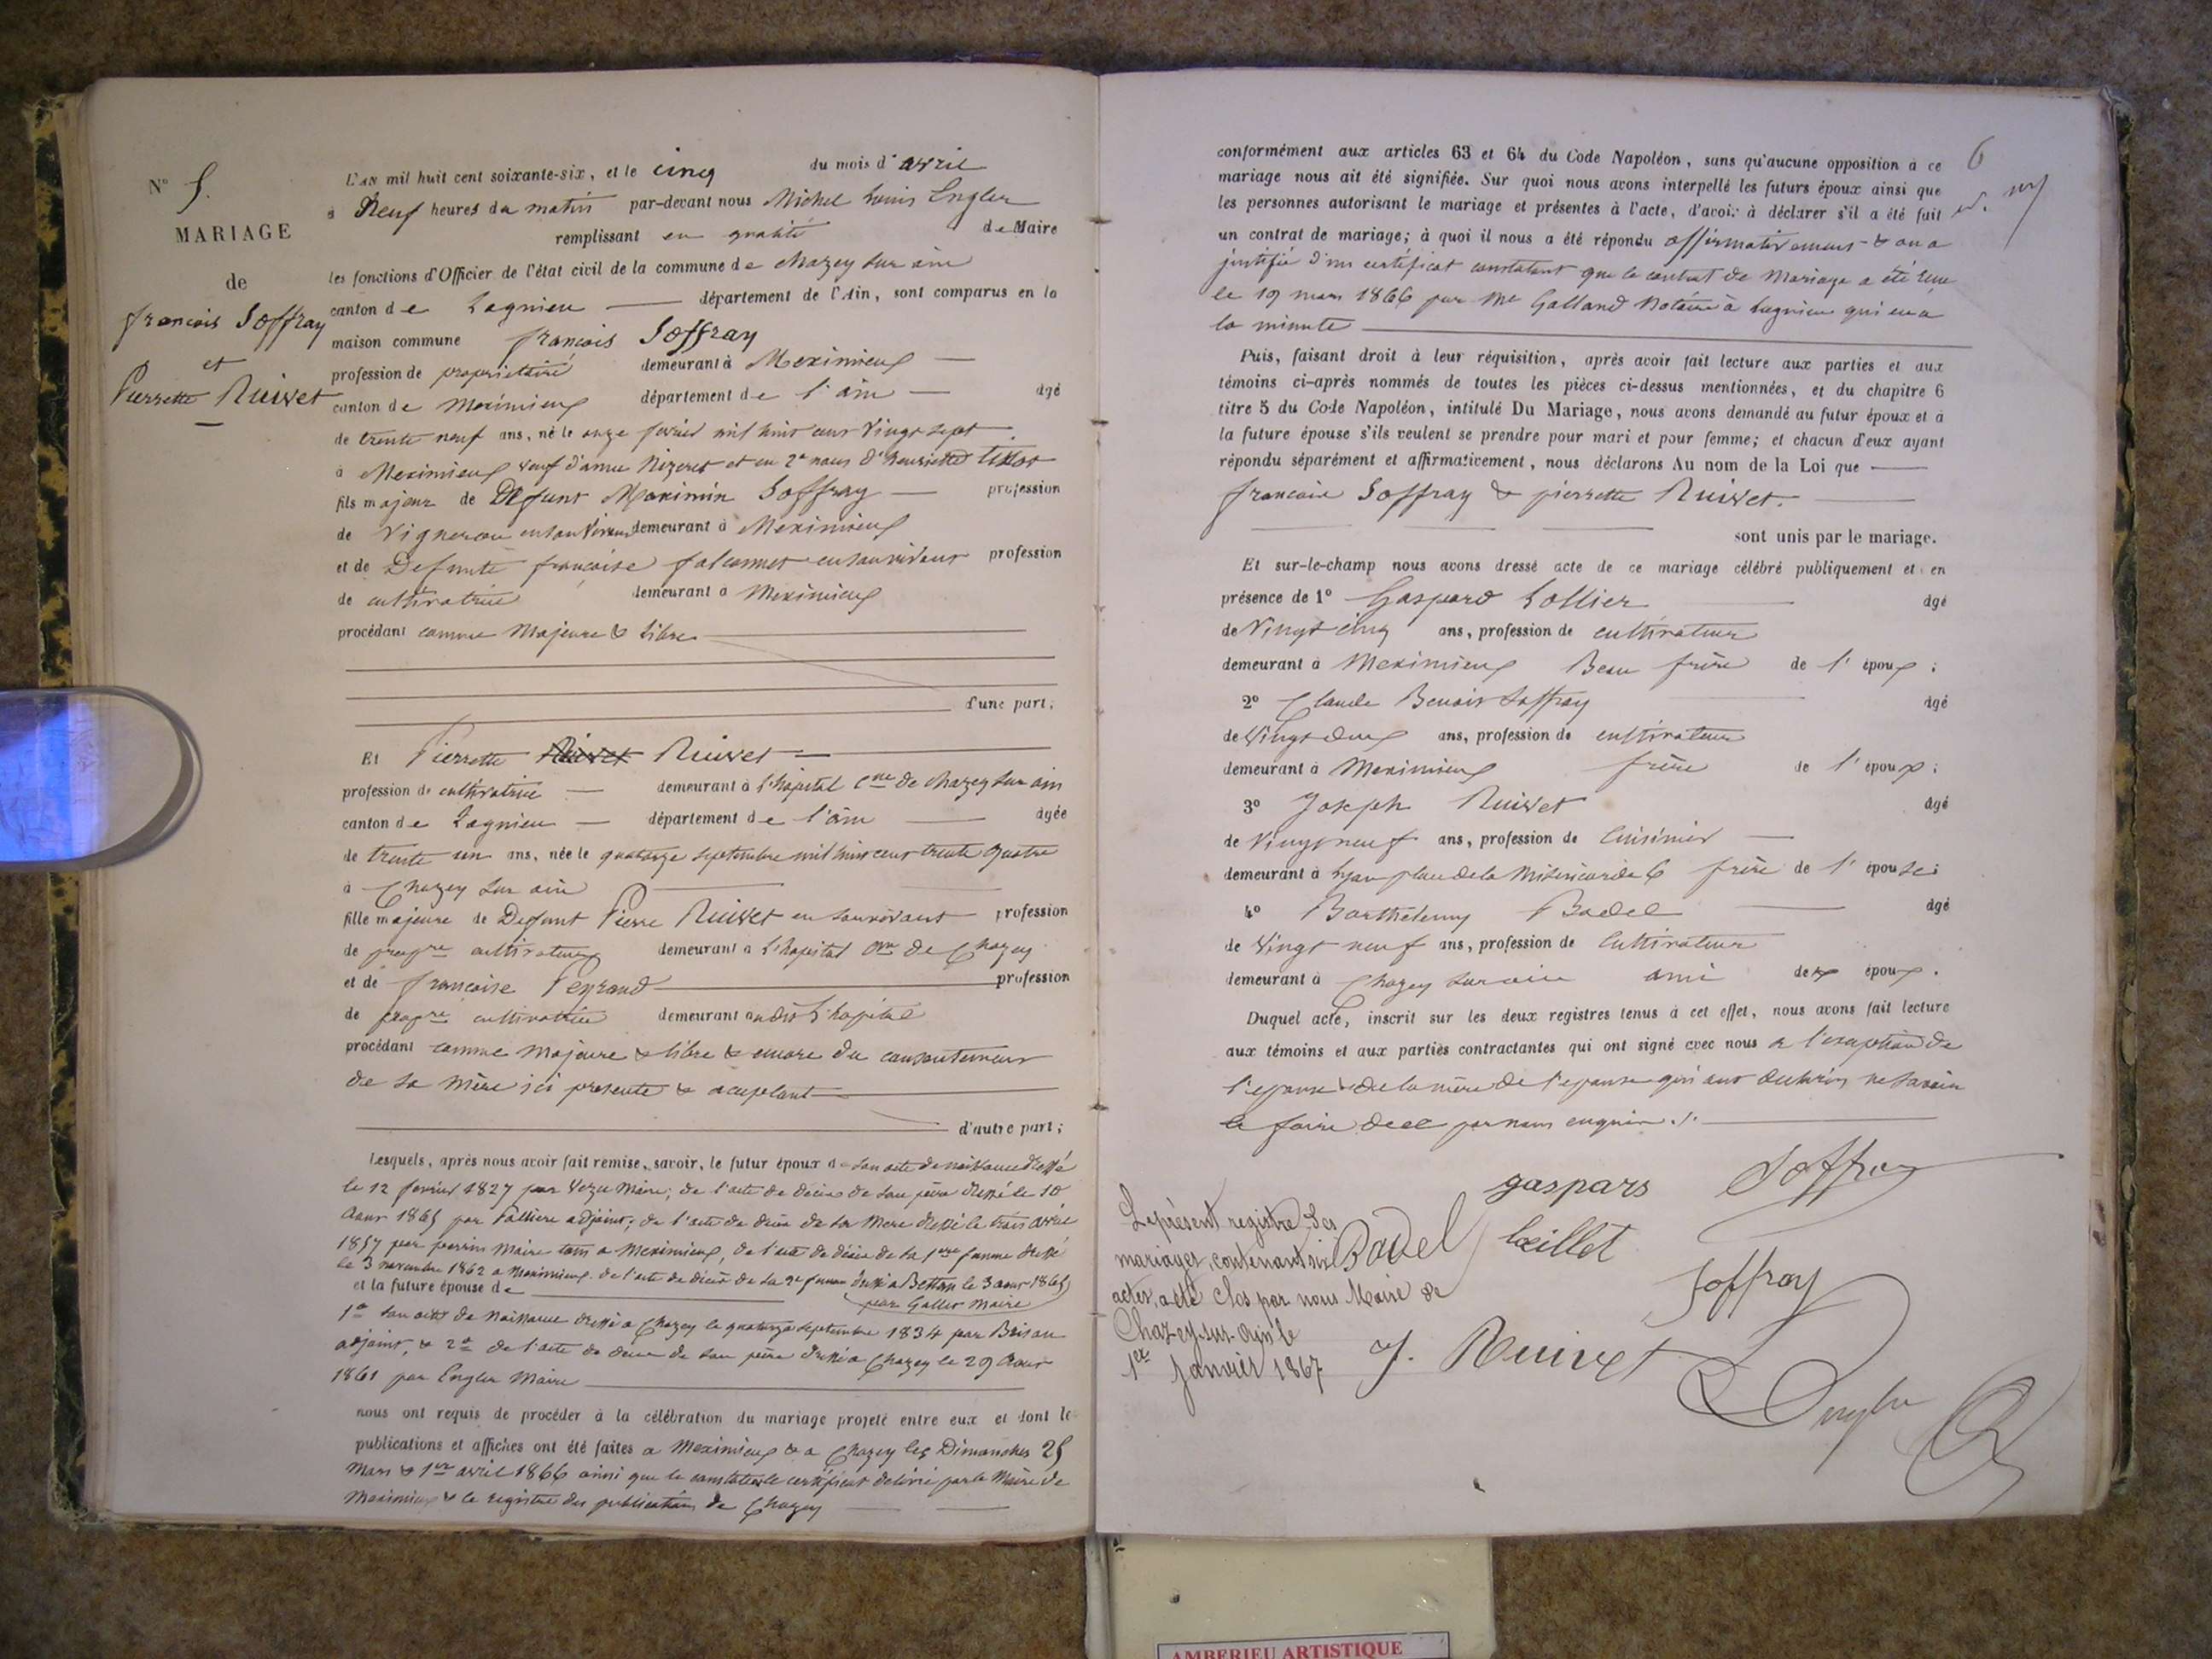 N° 5.
MARIAGE
de
françois Soffray
et
Pierrette Ruivet
L'AN mil huit cent soixante-six, et le cinq du mois d'avril
à Neuf heures du matin par-devant nous Michel Louis Engler
remplissant en qualité de Maire
les fonctions d'Officier de l'état civil de la commune de chazey sur ain
canton de Lagnieu département de l'Ain, sont comparus en la
maison commune françois Soffray
profession de propriétaire demeurant à Meximieux
canton de Meximieux département de l'ain âgé
de trente neuf ans, né le onze fevrier mil huit cent vingt sept
à Meximieux veuf d'anne et en 2e noces d'henriette
fils majeur de Défunt Maximin Soffray profession
de Vigneron en son vivant demeurant à Meximieux
et de Defunte françoise falconnet en son vivant profession
de cultivatrice demeurant à Meximieux
procédant comme Majeure & Libre
d'une part;
Et Pierrette Ruivet Ruivet
profession de cultivatrice demeurant à l'hôpital Cne de chazey sur ain
canton de Lagnieu département de l'ain âgée
de trente un ans, née le quatorze septembre mil huit cent trente quatre
à Chazey sur ain
fille majeure de Defunt Pierre Ruivet en son vivant profession
de propre cultivateur demeurant à l'hopital Cne de Chazey
et de françoise Peyraud profession
de propre cultivatrice demeurant audit l'hopital
procédant comme majeure & libre & encore du consentement
de sa mère ici présente & acceptant
d'autre part;
Lesquels, après nous avoir fait remise, savoir, le futur époux de son acte de naissance dressé
le 12 fevrier 1827 par Maire; de l'acte de décès de son père dressé le 10
Aout 1865 par adjoint; de l'acte de décès de sa mere dressé le trois avril
1857 par perrin Maire tous a Meximieux, de l'acte de décès de la 1ere femme dressé
le 3 novembre 1862 a Meximieux. de l'acte de décès de sa 2e femme dressé a Bettan le 3 aout 1865
par Gallet Maire
et la future épouse de
1° son acte de Naissance dressé a Chazey le quatorze septembre 1834 par Brison
adjoint, & 2° de l'acte de décès de son père dressé a Chazey le 29 Aout
1861 par Engler Maire
nous ont requis de procéder à la célébration du mariage projeté entre eux et dont le
publications et affiches ont été faites a Meximieux & a Chazey les Dimanches 25
Mars & 1er avril 1866 ainsi que le constate le certificat delivré par le Maire de
Meximieux & le registre des publications de Chazey
6
conformément aux articles 63 et 64 du Code Napoléon, sans qu'aucune opposition à ce
mariage nous ait été signifiée. Sur quoi nous avons interpellé les futurs époux ainsi que
les personnes autorisant le mariage et présentes à l'acte, d'avoir à déclarer s'il a été fait
un contrat de mariage; à quoi il nous a été répondu affirmativement & on a
justifié d'un certificat constatant que le contrat de Mariage a été reçu
le 19 mars 1866 par Me Galland Notaire à Lagnieu qui en a
la minute
Puis, faisant droit à leur réquisition, après avoir fait lecture aux parties et aux
témoins ci-après nommés de toutes les pièces ci-dessus mentionnées, et du chapitre 6
titre 5 du Code Napoléon, intitulé Du Mariage, nous avons demandé au futur époux et à
la future épouse s'ils veulent se prendre pour mari et pour femme; et chacun d'eux ayant
répondu séparément et affirmativement, nous déclarons Au nom de la Loi que
françois Soffray & pierrette Ruivet.
sont unis par le mariage.
Et sur-le-champ nous avons dressé acte de ce mariage célébré publiquement et en
présence de 1° Gaspard âgé
de Vingt cinq ans, profession de cultivateur
demeurant à Meximieux Beau frère de l'époux;
2° Claude Benoit Soffray âgé
de Vingt deux ans, profession de cultivateur
demeurant à Meximieux frère de l'époux;
3° Joseph Ruivet âgé
de Vingt neuf ans, profession de Cuisinier
demeurant à Lyon place de la Miséricorde 6 frère de l'épouse;
4° Barthélemy Badel âgé
de Vingt neuf ans, profession de Cultivateur
demeurant à Chazey sur ain ami des époux.
Duquel acte, inscrit sur les deux registres tenus à cet effet, nous avons fait lecture
aux témoins et aux parties contractantes qui ont signé avec nous a l'exception de
l'epouse & de la mère de l'epouse qui ont declaré ne savoir
le faire de ce par nous enquis ./.
gaspars Soffray
Badel
Soffray
J. Ruivet
Engler
Le présent registre des
mariages, contenant six
actes, a été clos par nous Maire de
Chazey-sur-Ain le
1er Janvier 1867
AMBERIEU ARTISTIQUE